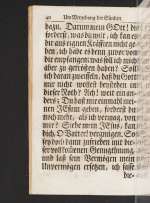 40 Um Vergebung der Sünden.
dazu. Darum mein GOtt! die
forderst, was du wilt, ich kan es
dir aus eignen Kräfften nicht ge-
ben, ich habe es denn zuvor von
dir empfangen; was soll ich mich
aber zu getrösten haben? Soll
ich daran zweiffeln, daß du GOtt
mir nicht woltest beystehen in
dieser Noth? Ach! weit ein an-
ders; Du hast mir einmahl mei-
nen JEsum geben, forderst du
noch mehr, als ich vermag, von
mir? Siehe mein JEsus, kan
dich, O Vater! vergnügen. So
sey doch dann zufrieden mit die-
ser vollkommenen Genugthuung,
und laß sein Vermögen mein
Unvermögen ersetzen, ich lasse
die-